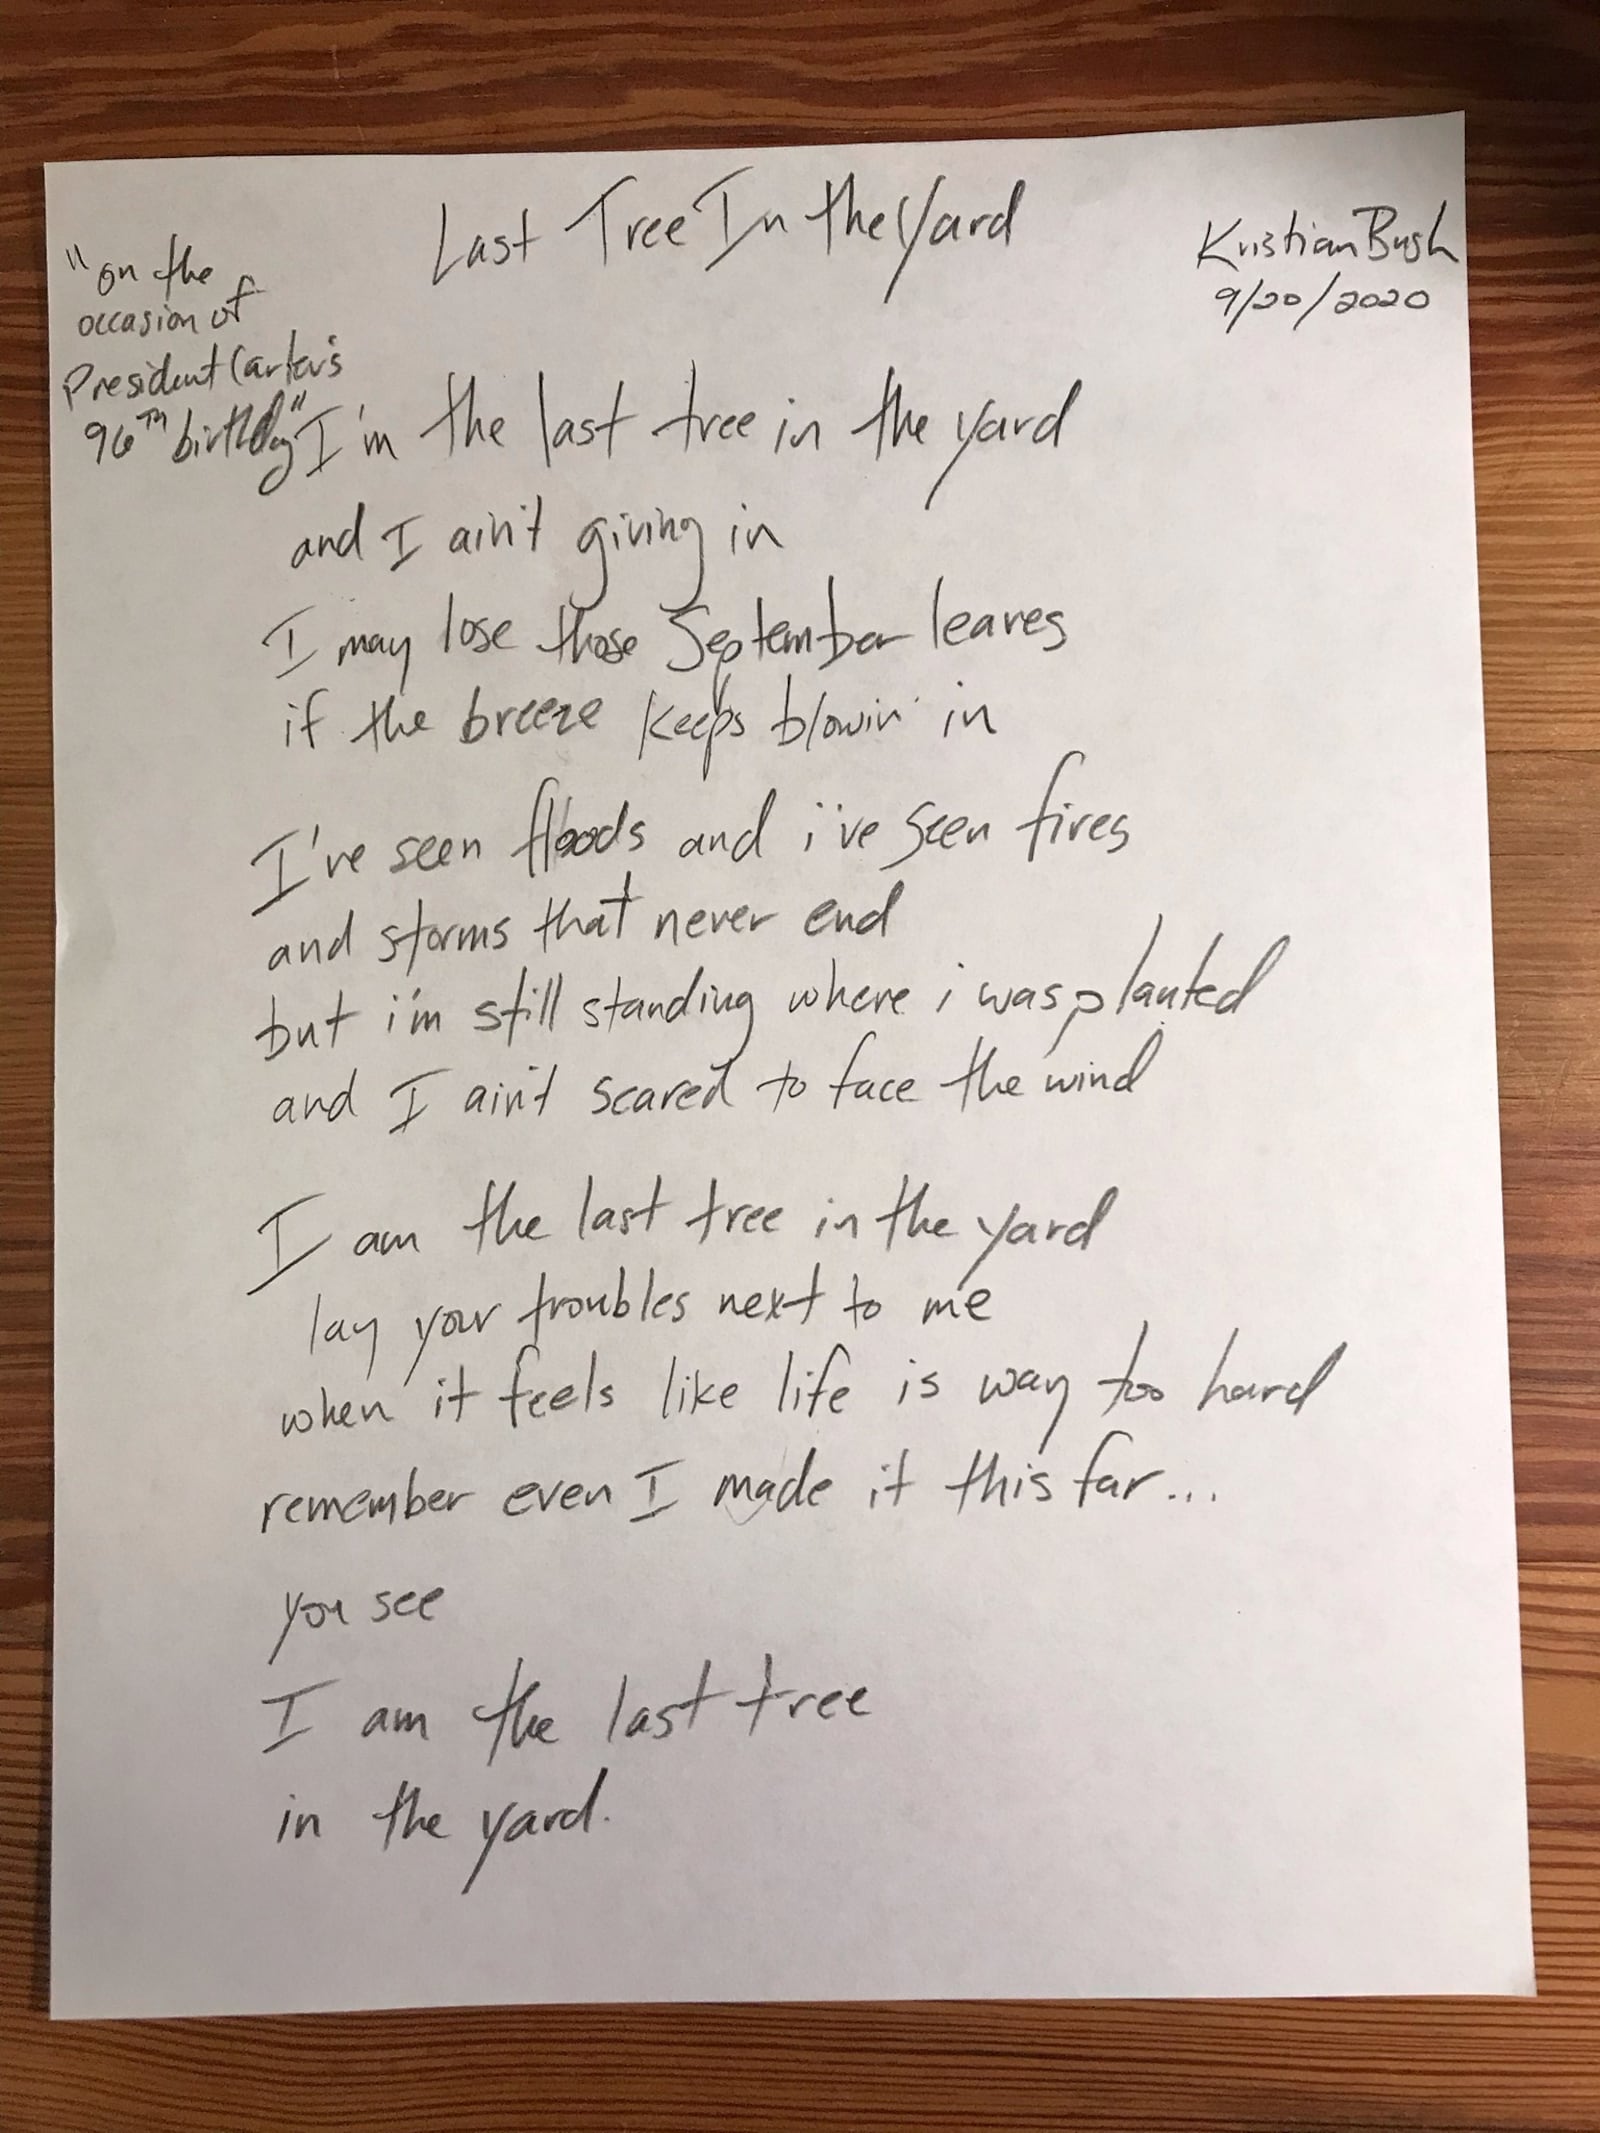 Last Tree In the Yard
Kristian Bush
9/20/2020
"on the
occasion of
President Carter's
96TH birthday"
I'm the last tree in the yard
and I ain't giving in
I may lose those September leaves
if the breeze keeps blowin' in
I've seen floods and i've seen fires
and storms that never end
but i'm still standing where i was planted
and I ain't scared to face the wind
I am the last tree in the yard
lay your troubles next to me
when it feels like life is way too hard
remember even I made it this far...
you see
I am the last tree
in the yard.